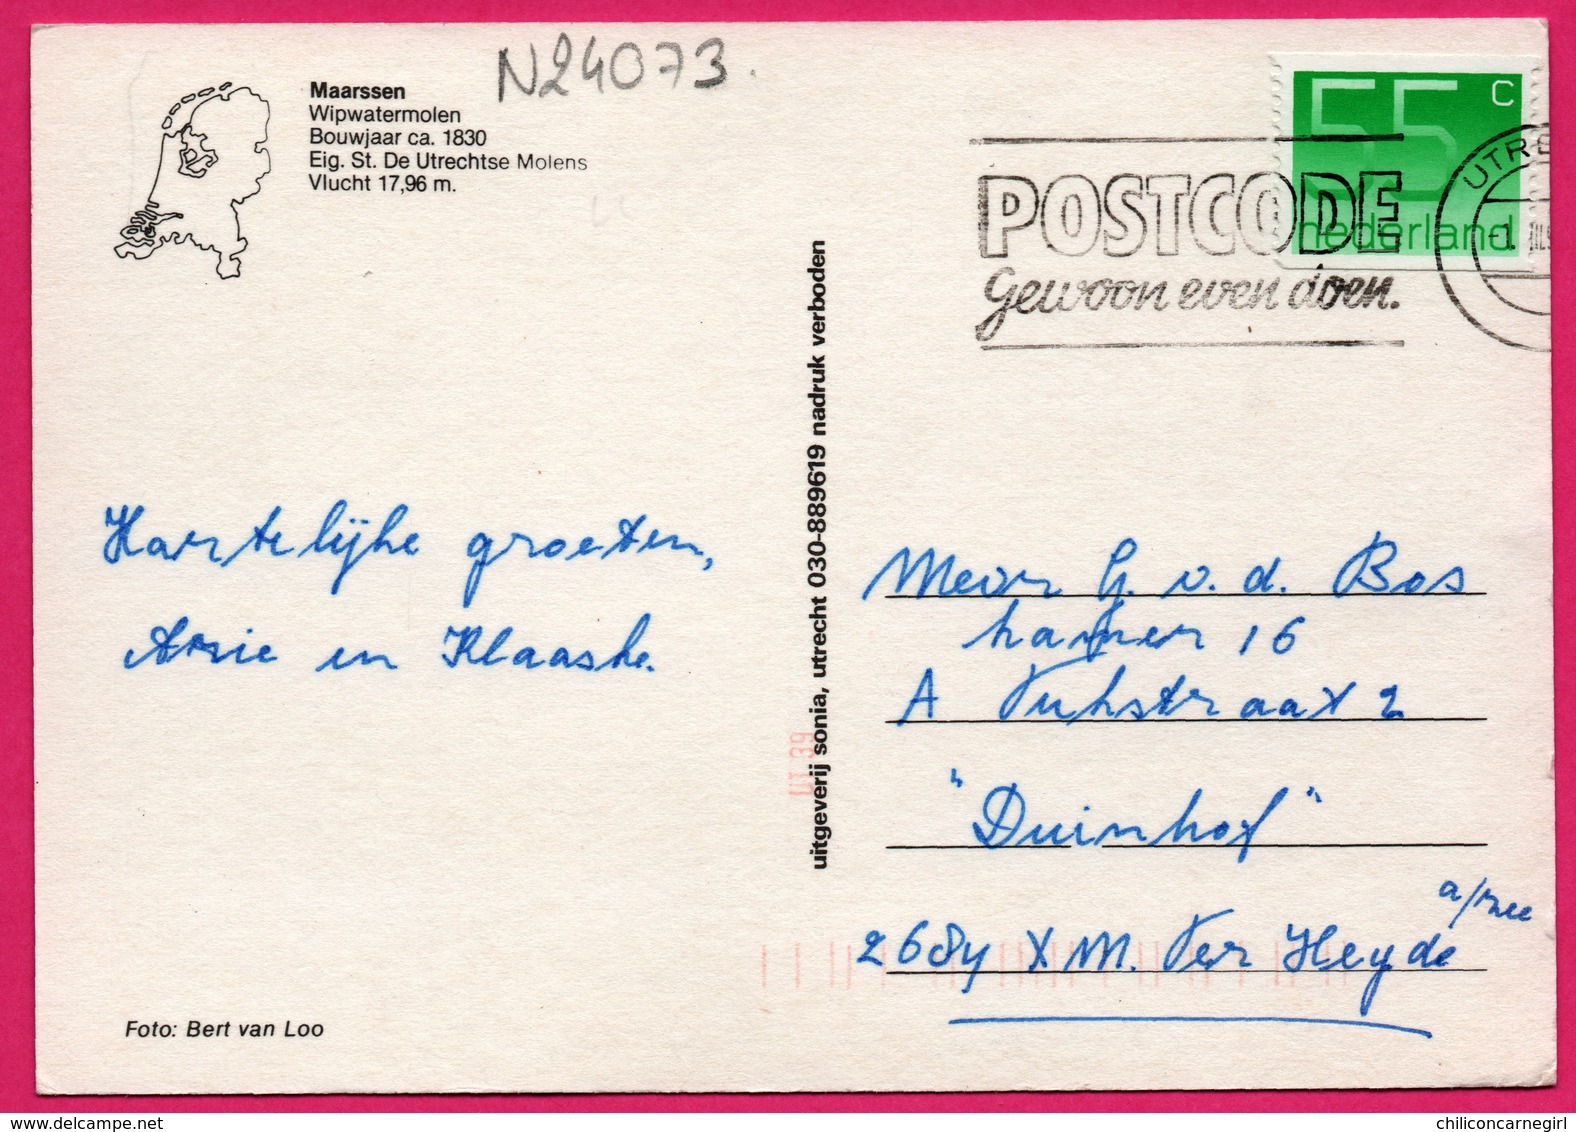 N24073
Maarssen
Wipwatermolen
Bouwjaar ca. 1830
Eig. St. De Utrechtse Molens
Vlucht 17,96 m.
55 c
nederland
UTRE
POSTCODE
Gewoon even doen.
uitgeverij sonia, utrecht 030-889619 nadruk verboden
Hartelijke groeten,
Arie en Klaaske.
Mevr G. v. d. Bos
kamer 16
A straat 2
"Duinhof"
2684 X M. Ter Heyde
a/zee
Foto: Bert van Loo
delcampe.net
chiliconcarnegirl